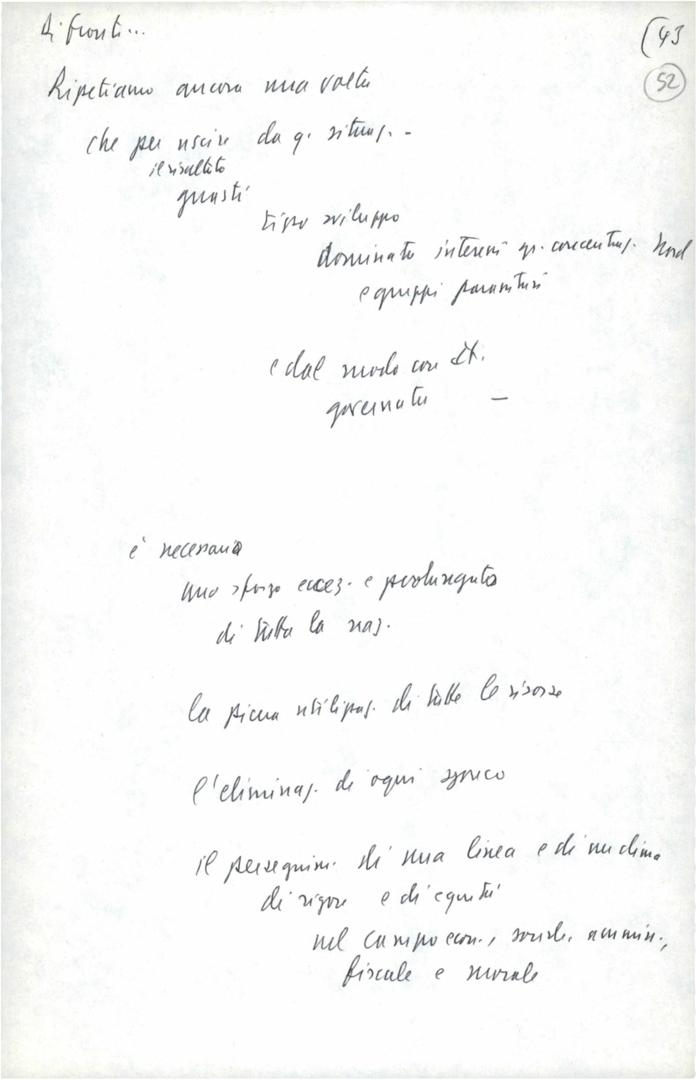 Di fronte...
(43
52
Ripetiamo ancora una volta
che per uscire da q. situaz. -
il risultato
guasti
tipo sviluppo
dominato interessi gr. concentraz. Nord
e gruppi parassitari
e dal modo con It.
governata -
è necessario
uno sforzo eccez. e prolungato
di tutta la naz.
la piena utilizzaz. di tutte le risorse
l'eliminaz. di ogni spreco
il perseguim. di una linea e di un clima
di rigore e di equità
nel campo econ., sociale, ammin.,
fiscale e morale